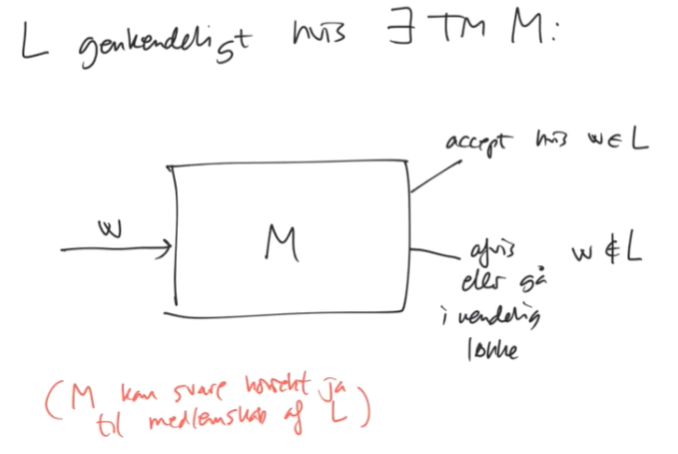 L genkendeligt hvis ∃ TM M:
accept hvis w ∈ L
w
M
afvis w ∉ L
eller gå
i uendelig
løkke
(M kan svare korrekt ja
til medlemskab af L)